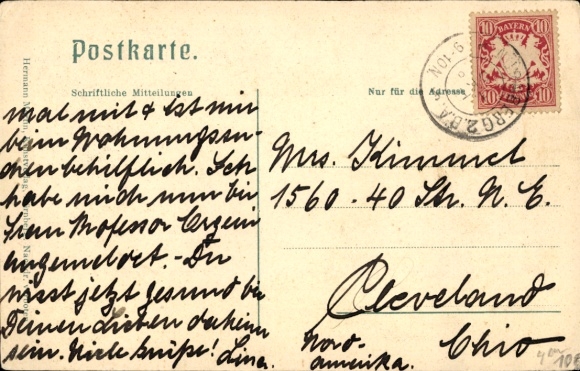 Postkarte.
Schriftliche Mitteilungen
Nur für die Adresse
10 BAYERN 10
10 10
mal mit & ist mir
beim Wohnungssu-
chen behilflich. Ich
habe mich nun bei
Herrn Professor
angemeldet. - Du
wirst jetzt gesund bei
Deinen Lieben daheim
sein. Viele Grüße! Lina.
Mrs. Kimmel
1560-40 Str. N. E.
Cleveland
Ohio
Nord-
amerika.